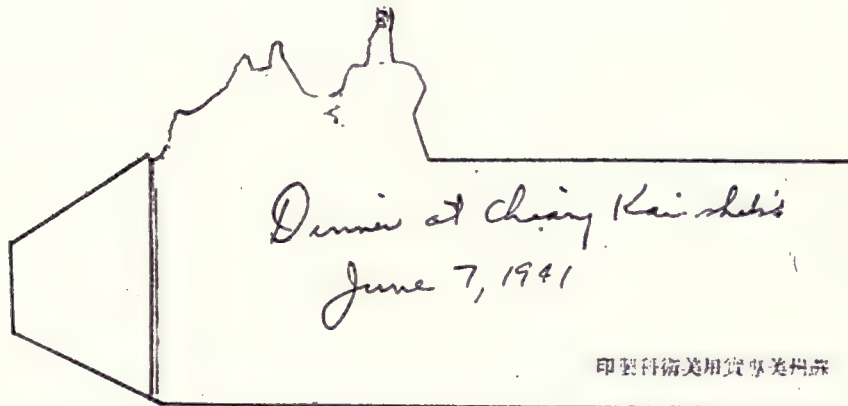 Dinner at Chiang Kai-shek's
June 7, 1941
印製科術美用實專美州蘇